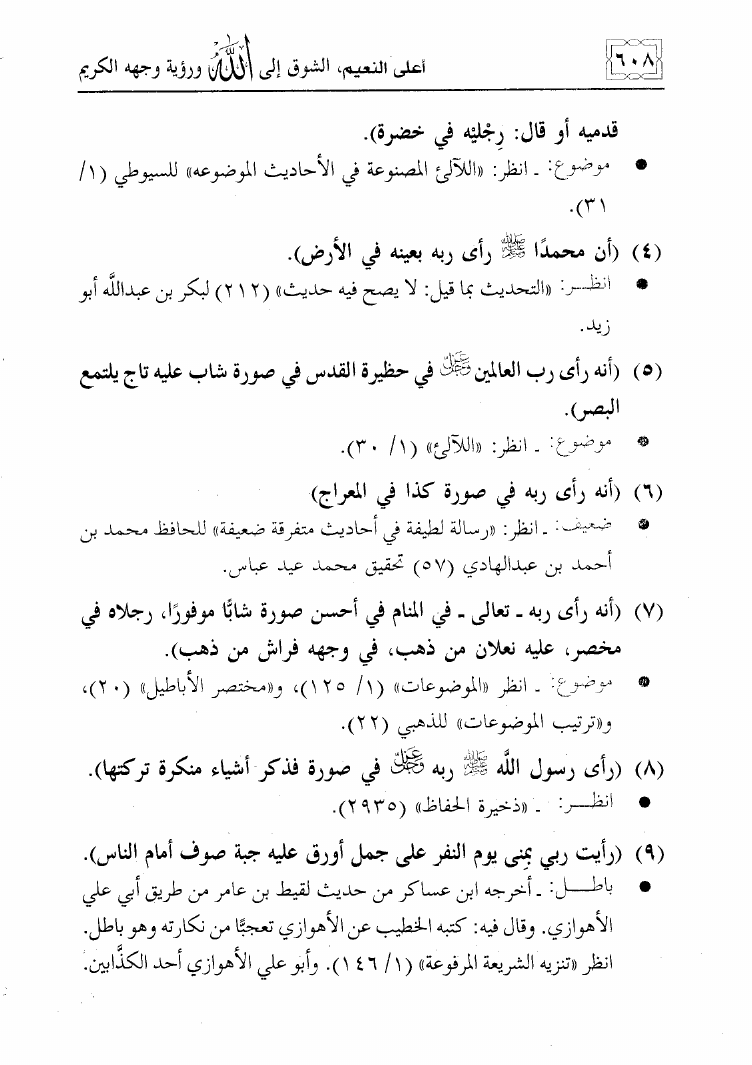 ٦٠٨
أعلى النعيم، الشوق إلى الله ورؤية وجهه الكريم
قدميه أو قال: رِجْليْه في خضرة).
● موضوع: ـ انظر: «اللآلئ المصنوعة في الأحاديث الموضوعه» للسيوطي (١/
٣١).
(٤) (أن محمدًا ﷺ رأى ربه بعينه في الأرض).
● انظـر: «التحديث بما قيل: لا يصح فيه حديث» (٢١٢) لبكر بن عبدالله أبو
زيد.
(٥) (أنه رأى رب العالمين عز وجل في حظيرة القدس في صورة شاب عليه تاج يلتمع
البصر).
● موضوع: ـ انظر: «اللآلئ» (١/ ٣٠).
(٦) (أنه رأى ربه في صورة كذا في المعراج)
● ضعيف: ـ انظر: «رسالة لطيفة في أحاديث متفرقة ضعيفة» للحافظ محمد بن
أحمد بن عبدالهادي (٥٧) تحقيق محمد عيد عباس.
(٧) (أنه رأى ربه ـ تعالى ـ في المنام في أحسن صورة شابًّا موفورًا، رجلاه في
مخصر، عليه نعلان من ذهب، في وجهه فراش من ذهب).
● موضوع: ـ انظر «الموضوعات» (١/ ١٢٥)، و«مختصر الأباطيل» (٢٠)،
و«ترتيب الموضوعات» للذهبي (٢٢).
(٨) (رأى رسول اللَّه ﷺ ربه عز وجل في صورة فذكر أشياء منكرة تركتها).
● انظـر: ـ «ذخيرة الحفاظ» (٢٩٣٥).
(٩) (رأيت ربي بمِنى يوم النفر على جمل أورق عليه جبة صوف أمام الناس).
● باطـل: ـ أخرجه ابن عساكر من حديث لقيط بن عامر من طريق أبي علي
الأهوازي. وقال فيه: كتبه الخطيب عن الأهوازي تعجبًا من نكارته وهو باطل.
انظر «تنزيه الشريعة المرفوعة» (١/ ١٤٦). وأبو علي الأهوازي أحد الكذَّابين.